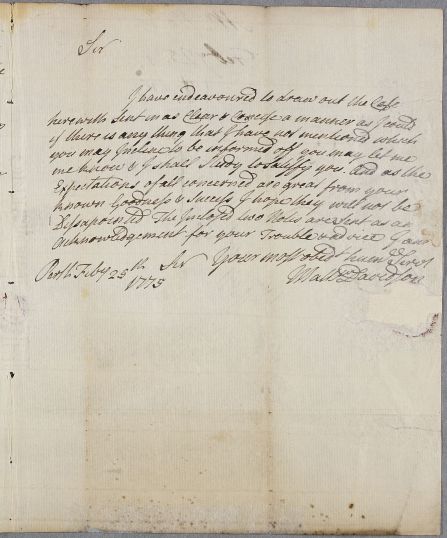 Sir
I have endeavoured to draw out the Case
herewith Sent in as Clear & Concise a manner as I could
if there is any thing that I have not mentioned which
you may Incline to be informed off you may let me
me know & I shall Study to Satisfy you. and as the
Expectations of all concerned are great from your
known Goodness & Success I hope they will not be
Dissapointed The Inclosed two Notes are Sent as an
acknowledgement for your Trouble and
Sir Your most obedt hum Servt
Perth Feby 25th
1775
Davidson